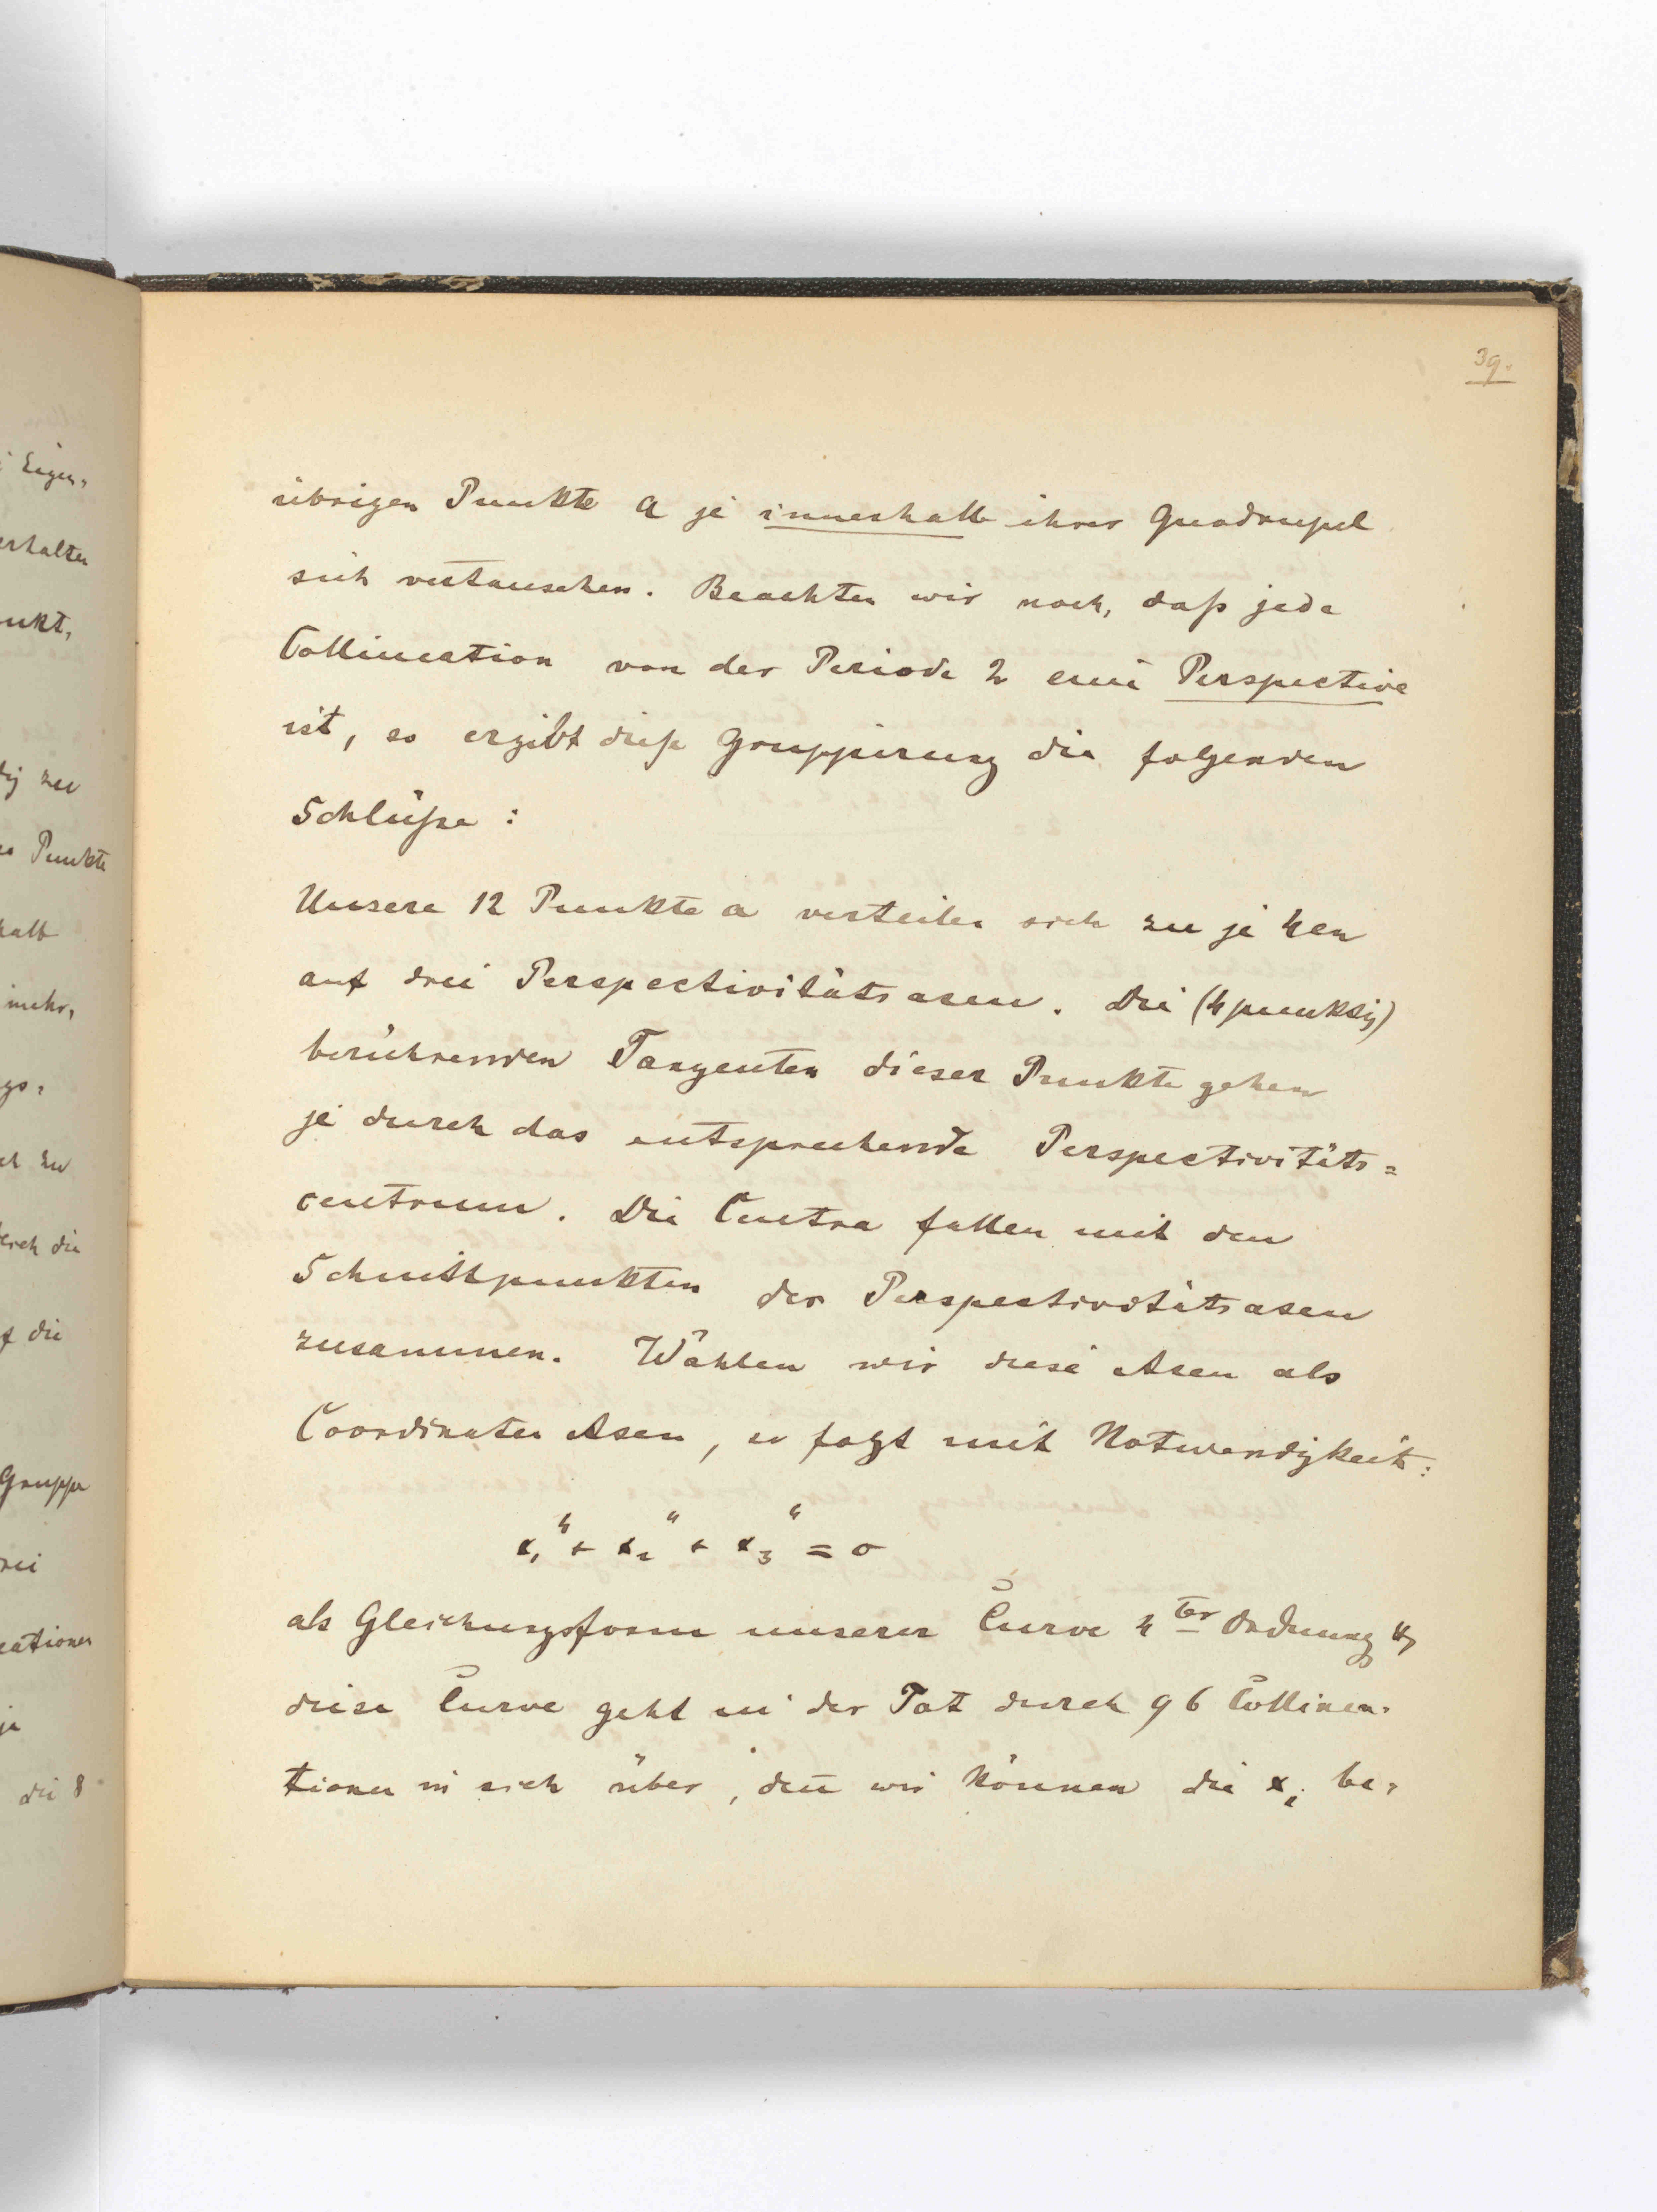 39.
übrigen Punkte a je innerhalb ihrer Quadrupel
sich vertauschen. Beachten wir noch, daß jede
Collineation von der Periode 2 eine Perspective
ist, so ergibt diese Gruppirung die folgenden
Schlüße:
Unsere 12 Punkte a verteilen sich zu je 4en
auf drei Perspectivitätsaxen. Die (4punktig)
berührenden Tangenten dieser Punkte gehen
je durch das entsprechende Perspectivitäts=
centrum. Die Centra fallen mit den
Schnittpunkten der Perspectivitätsaxen
zusammen. Wählen wir diese Axen als
Coordinaten Axen, so folgt mit Notwendigkeit:
x₁⁴ + x₂⁴ + x₃⁴ = 0
als Gleichungsform unserer Curve 4ter Ordnung
diese Curve geht in der Tat durch 96 Collinea=
tionen in sich über, den̄ wir können die xᵢ be=
Eigen=
erhalten
unkt,
zu
Punkte
halb
mehr,
zu
durch die
auf die
Gruppe
je
die 8